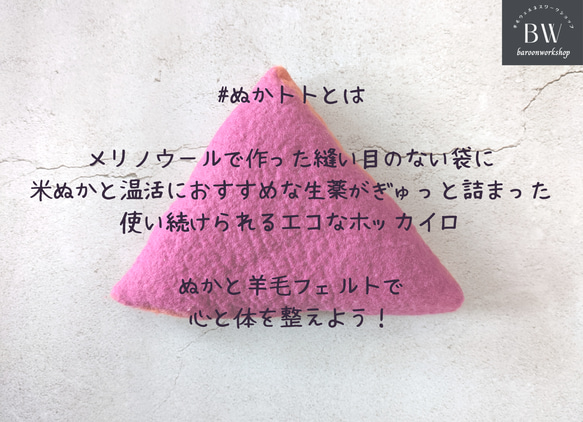 BW
baroonworkshop
#ぬかトトとは
メリノウールで作った縫い目のない袋に
米ぬかと温活におすすめな生薬がぎゅっと詰まった
使い続けられるエコなホッカイロ
ぬかと羊毛フェルトで
心と体を整えよう！